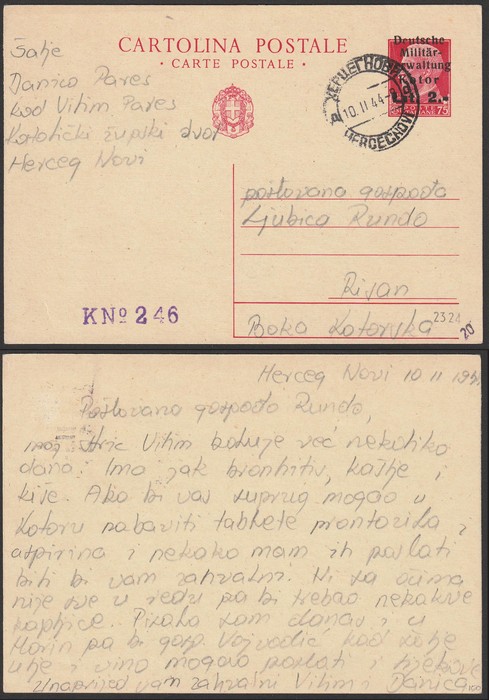 CARTOLINA POSTALE
• CARTE POSTALE •
Deutsche
Militär-
Kotor
2.-
75
10.II.44
Šalje
Danica Pares
kod Vitim Pares
Katolički župski dvor
Herceg Novi
poštovana gospođa
Ljubica Rundo
Risan
Boka Kotorska
2324
20
KNº 246
Herceg Novi 10 II
Poštovana gospođo Rundo,
moj stric Vitim boluje već nekoliko
dana. Ima jak bronhitis, kašlje i
kiše. Ako bi vaš suprug mogao u
Kotoru nabaviti tablete prontozila i
aspirina i nekako nam ih poslati
bili bi vam zahvalni. Ni sa očima
nije sve u redu pa bi trebao nekakve
kapljice. Pisala sam danas i u
Morin pa bi gosp. Vojvodić kad
ulje i vino mogao poslati i
Unaprijed vam zahvalni Vitim i Danica